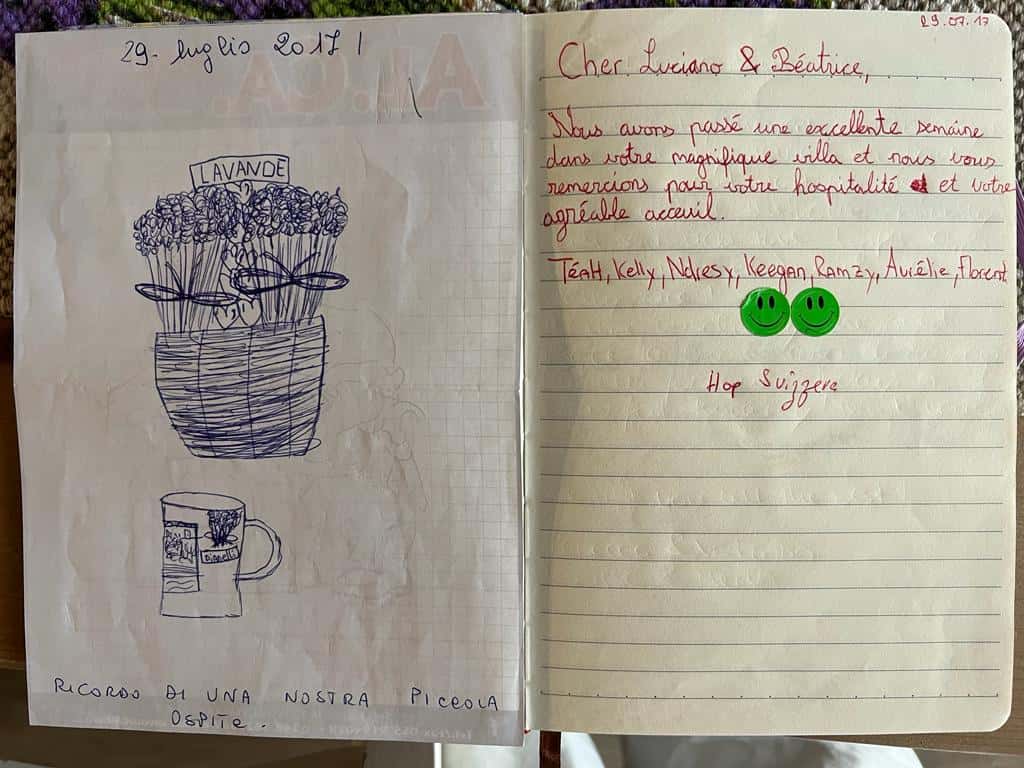 29. luglio 2017
LAVANDE
RICORDO DI UNA NOSTRA PICCOLA
OSPITE.
29.07.17
Cher Luciano & Béatrice,
Nous avons passé une excellente semaine
dans votre magnifique villa et nous vous
remercions pour votre hospitalité et votre
agréable acceuil.
Téah, Kelly, Ndresy, Keegan, Ramzy, Aurélie, Florent
Hop Suizzera